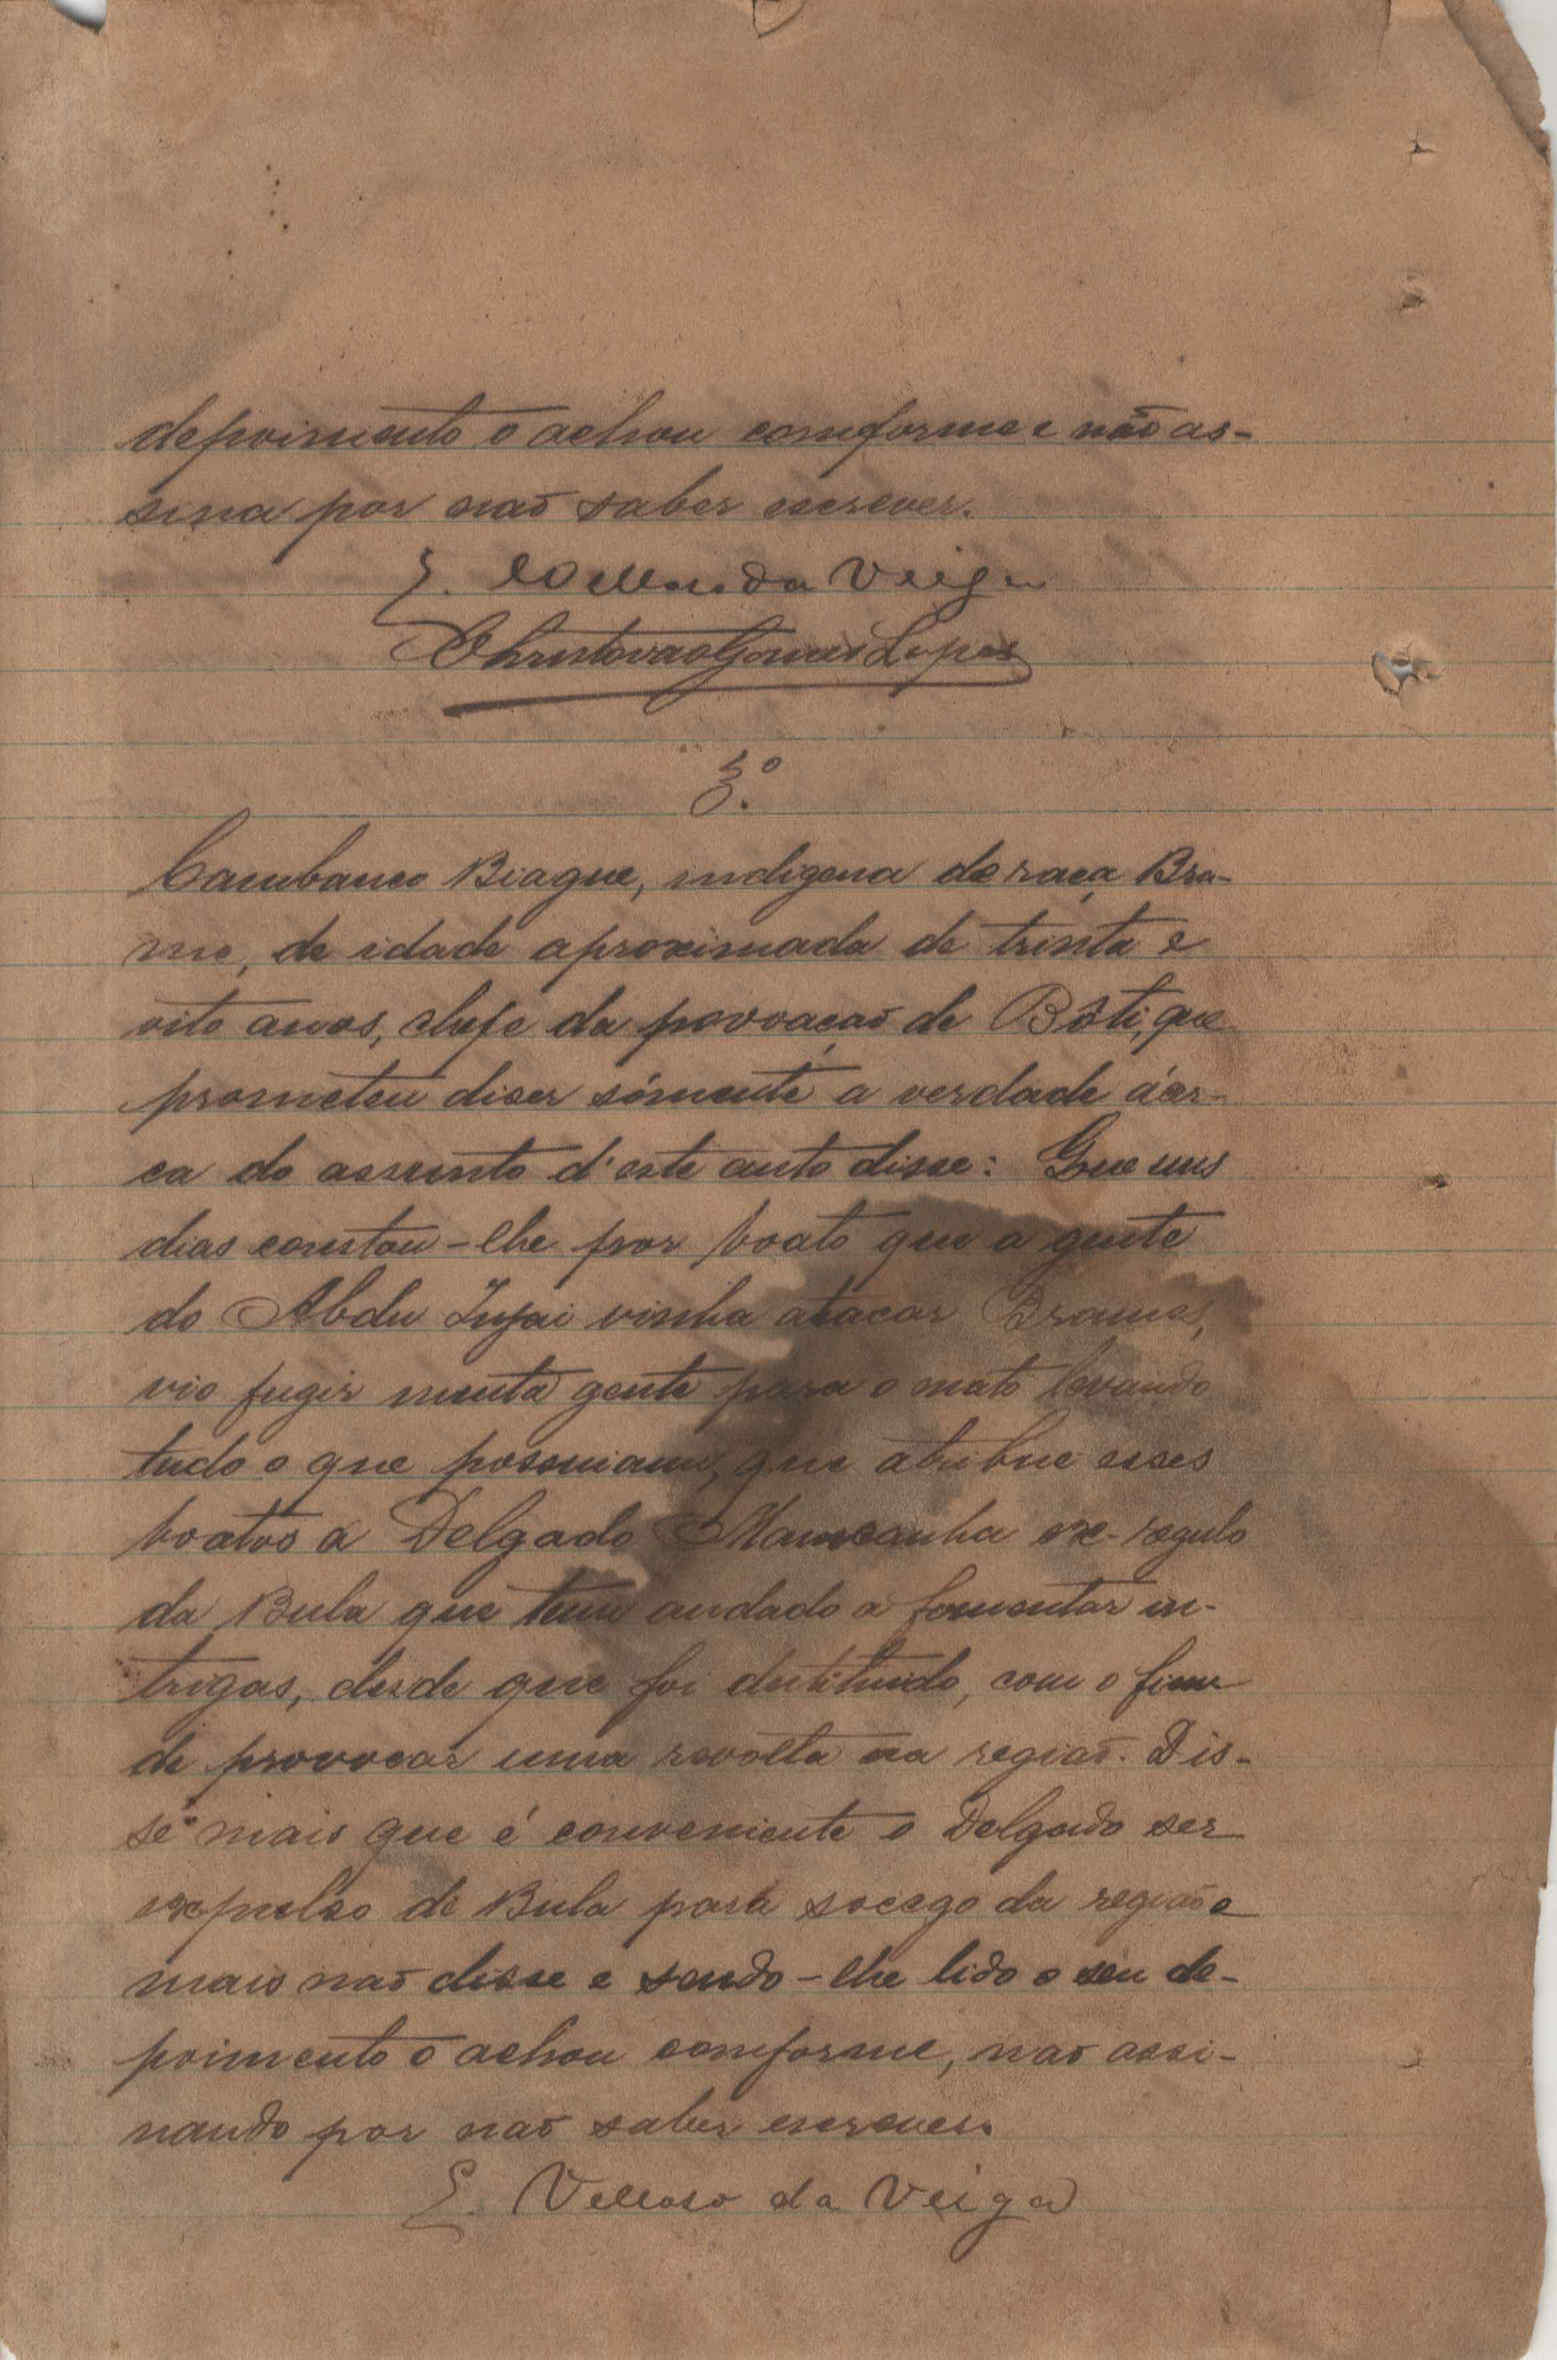 depoimento o achou comforme e não as-
sina por não saber escrever.
E. Velloso da Veiga
Christovão Gomes Lopes
3.º
Cambanco Biague, indigena de raça Bra-
me, de idade aproximada de trinta e
oito anos, chefe da povoação de Bôti, que
prometeu diser sómente a verdade ácer-
ca do assunto d'este auto disse: Que uns
dias constou-lhe por boato que a gente
do Abdu Injai vinha atacar Brames,
vio fugir muita gente para o mato levando
tudo o que possuiam, que atribue esses
boatos a Delgado Mancanha ex-regulo
da Bula que tem andado a fomentar in-
trigas, desde que foi destituido, com o fim
de provocar uma revolta na região. Dis-
se mais que é conveniente o Delgado ser
expulso de Bula para socego da região e
mais não disse e sendo-lhe lido o seu de-
poimento o achou comforme, não assi-
nando por não saber escrever.
E. Velloso da Veiga